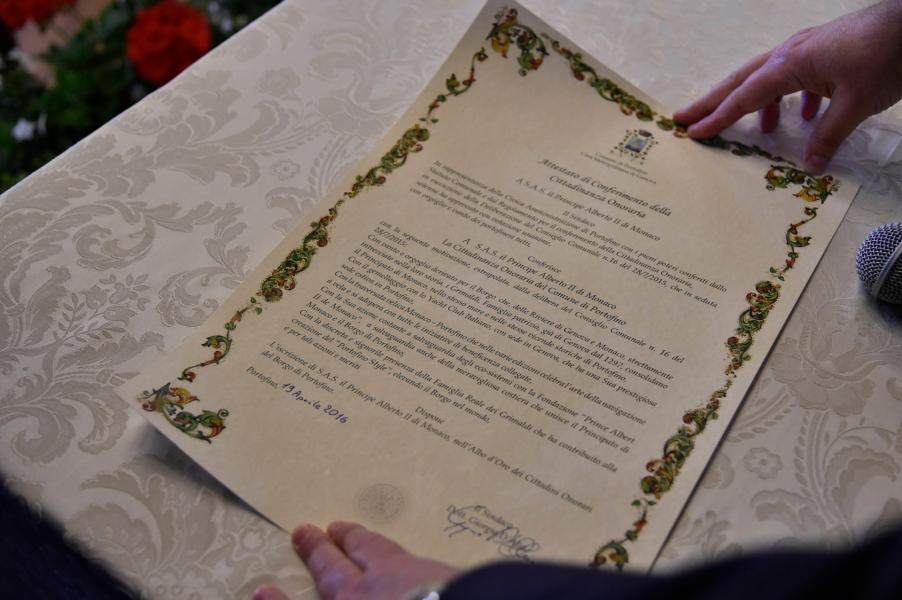 Comune di Portofino
Città Metropolitana di Genova
Attestato di Conferimento della
Cittadinanza Onoraria
A S.A.S. il Principe Alberto II di Monaco
Il Sindaco
In rappresentanza della Civica Amministrazione di Portofino con i pieni poteri conferiti dallo
Statuto Comunale e dal Regolamento per il conferimento della Cittadinanza Onoraria,
in esecuzione della Deliberazione del Consiglio Comunale n.16 del 28/7/2015, che in seduta
solenne ha approvato con votazione unanime,
e orgoglio e vanto dei portofinesi tutti,
Conferisce
A S.A.S. il Principe Alberto II di Monaco
La Cittadinanza Onoraria del Comune di Portofino
con la seguente motivazione, estrapolata dalla delibera del Consiglio Comunale n. 16 del
28/7/2015:
Con onore e orgoglio derivato per il Borgo che, delle Riviere di Genova e Monaco, strettamente
intrecciate nella loro storia, i Grimaldi, Famiglia patrizia, già di Genova dal 1292, consolidano
il Principato di Monaco, nello stesso mare e nelle stesse vicende storiche di Portofino.
Con il gemellaggio con lo Yacht Club Italiano, con sede in Genova, che ha una Sua prestigiosa
sede estiva in Portofino.
Con la trentennale regata Monaco - Portofino che nelle varie edizioni celebra l'arte della navigazione
a vela e si adopera con tutte le iniziative di beneficenza collegate.
Con la Sua azione costante a salvaguardia degli eco-sistemi con la Fondazione "Prince Albert
II de Monaco", a salvaguardia anche della meravigliosa costiera che unisce il Principato di
Monaco e il Borgo di Portofino.
Con la discreta e signorile presenza della Famiglia Reale dei Grimaldi che ha contribuito alla
creazione del "Portofino Style", elevando il Borgo nel mondo.
e per tali azioni e meriti
Dispone
L'iscrizione di S.A.S. il Principe Alberto II di Monaco, nell'Albo d'Oro dei Cittadini Onorari
del Borgo di Portofino.
Portofino, 19 Aprile 2016
Il Sindaco
Dott. Giorgio